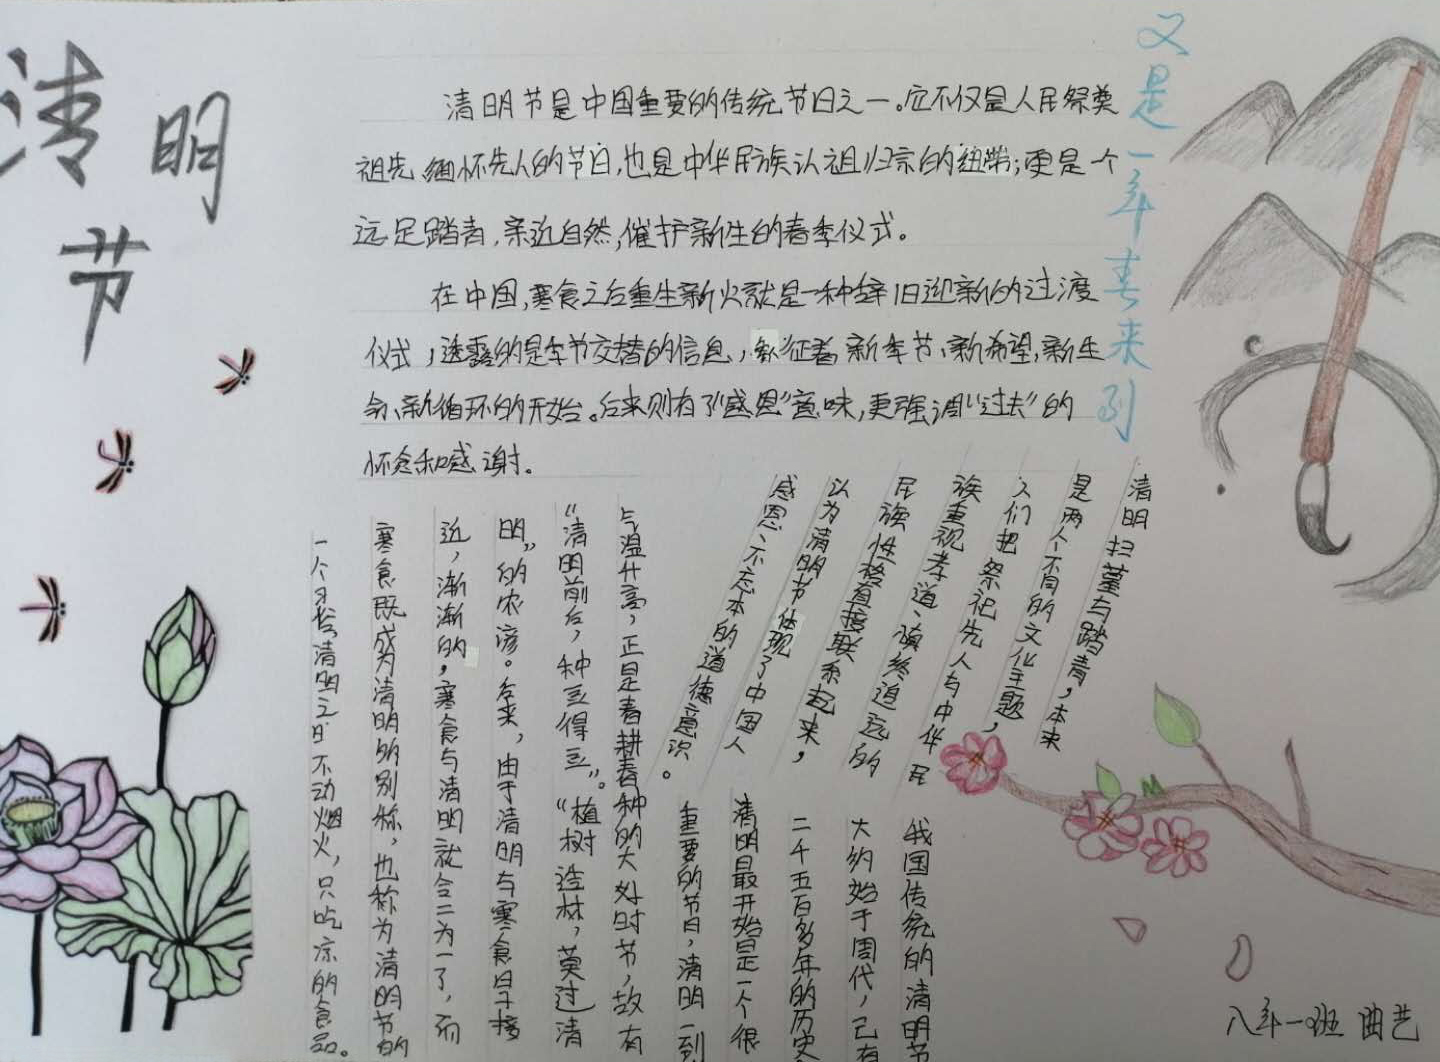 清明节
又是一年春来到
清明节是中国重要的传统节日之一。它不仅是人民祭奠
祖先、缅怀先人的节日,也是中华民族认祖归宗的纽带;更是一个
远足踏青,亲近自然,催护新生的春季仪式。
在中国,寒食之后重生新火就是一种辞旧迎新的过渡
仪式,透露的是季节交替的信息,象征着新季节、新希望,新生
命、新循环的开始。后来则有了“感恩”意味,更强调“过去”的
怀念和感谢。
清明扫墓与踏青,本来
是两个不同的文化主题,
人们把祭祀先人与中华民
族重视孝道、慎终追远的
民族性格直接联系起来,
认为清明节体现了中国人
感恩、不忘本的道德意识。
我国传统的清明节
大约始于周代,已有
二千五百多年的历史
清明最开始是一个很
重要的节日,清明一到
气温升高,正是春耕春种的大好时节,故有
“清明前后,种豆得豆”。“植树造林,莫过清
明”的农谚。后来,由于清明与寒食日子接
近,渐渐的,寒食与清明就合二为一了,而
寒食既成为清明的别称,也称为清明节的
一个习俗,清明之日不动烟火,只吃凉的食品。
八年一班 曲艺